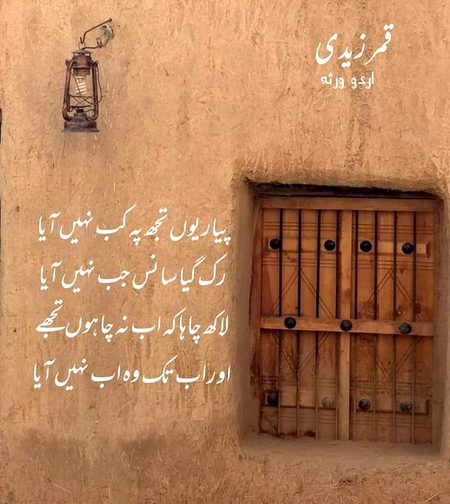 قمر زیدی
اردو ورثہ
پیار یوں تجھ پہ کب نہیں آیا
رک گیا سانس جب نہیں آیا
لاکھ چاہا کہ اب نہ چاہوں تجھے
اور اب تک وہ اب نہیں آیا